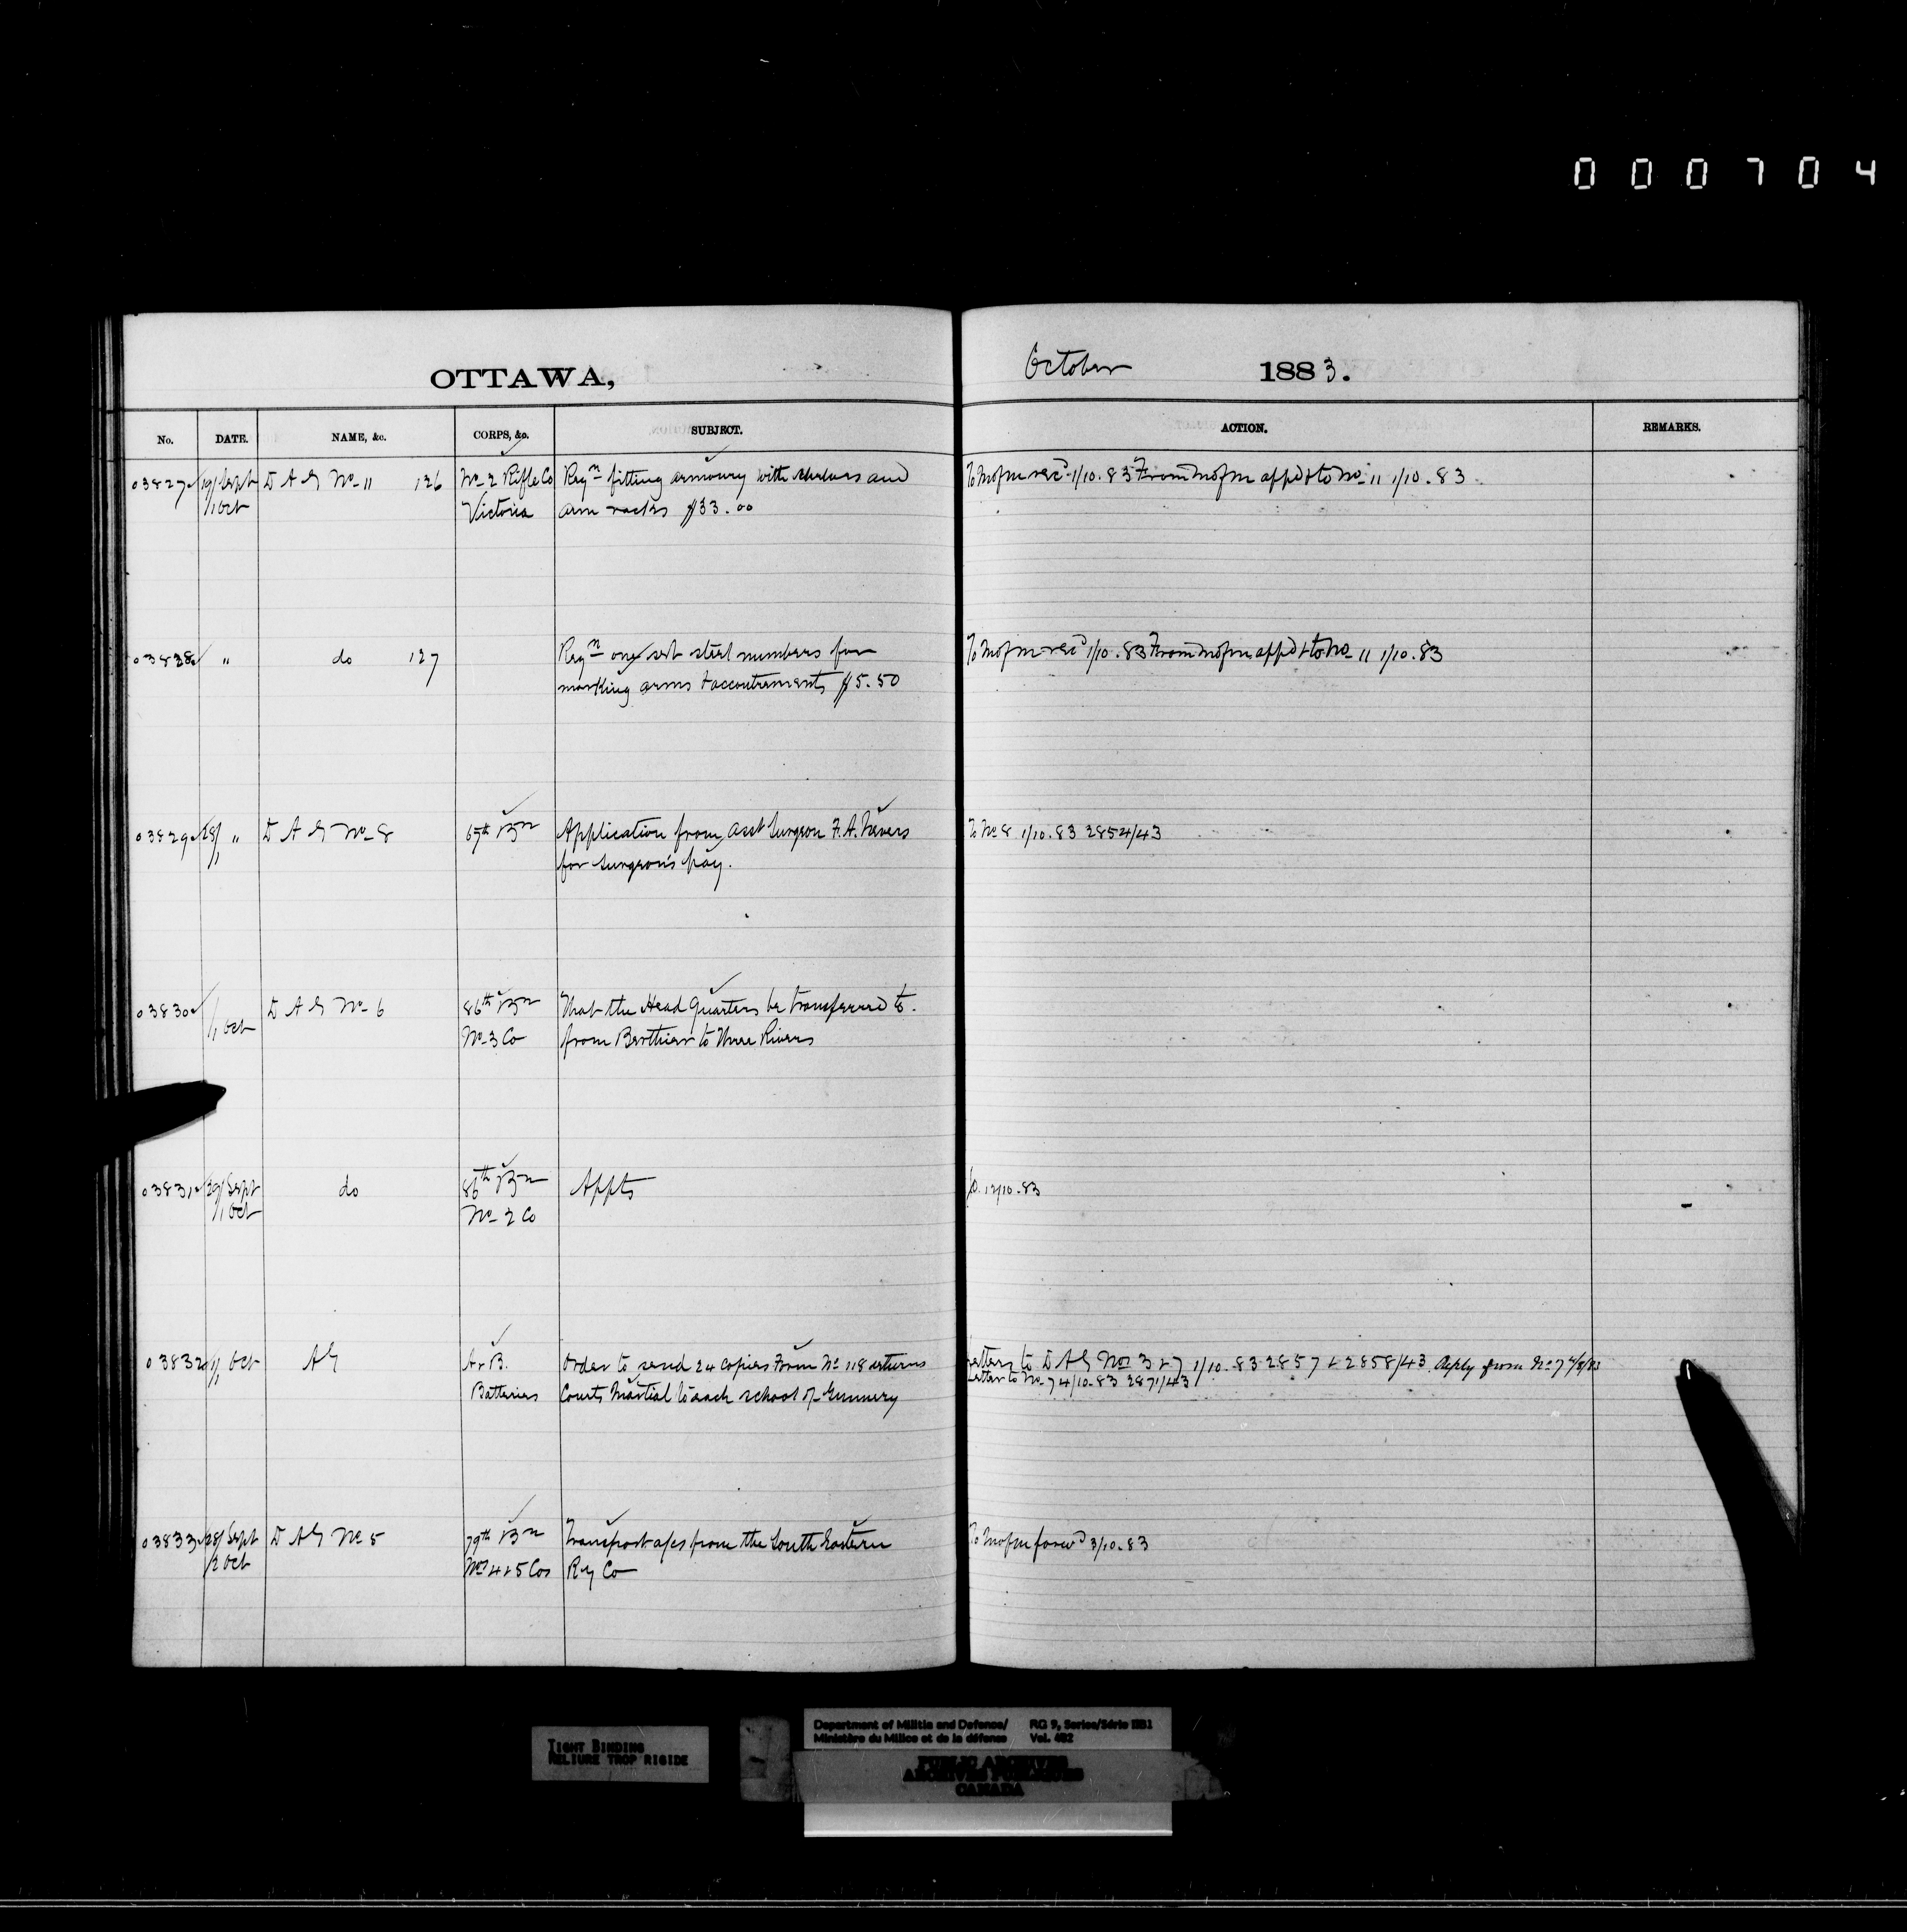 000704
OTTAWA,
October 1883.
No. DATE. NAME, &c. CORPS, &c. SUBJECT. ACTION. REMARKS.
03827 19/Sept D A G No 11 126 No 2 Rifle Co Reqn fitting armoury with shelves and To M of m rec'd 1/10.83 From M of m app'd & to No 11 1/10.83
/1 Oct Victoria arm racks $33.00
03828 " do 127 Reqn one set steel numbers for To M of m rec'd 1/10.83 From M of m app'd & to No 11 1/10.83
marking arms & accoutrements $5.50
03829 28/1 " D A G No 8 67th Bn Application from Asst Surgeon F. A. Nevers To No 8 1/10.83 2854/43
for Surgeon's pay.
03830 /1 Oct D A G No 6 86th Bn That the Head Quarters be transferred to
No 3 Co from Berthier to Three Rivers
03831 29/Sept do 86th Bn Appts 12/10.83
/1 Oct No 2 Co
03832 1/1 Oct AG A & B. Order to send 24 copies Form No 118 returns Letters to D A G Nos 3 & 7 1/10.83 2857 & 2858/43 Reply from No 7
Batteries Courts Martial to each school of Gunnery Letter to No 7 4/10.83 2871/43
03833 28/Sept D A G No 5 79th Bn Transport a/cs from the South Eastern To M of m forw'd 3/10.83
/2 Oct Nos 4 & 5 Cos Ry Co
TIGHT BINDING
RELIURE TROP RIGIDE
Department of Militia and Defence/ RG 9, Series/Série IIB1
Ministère du Milice et de la défense Vol. 482
PUBLIC ARCHIVES
ARCHIVES PUBLIQUES
CANADA